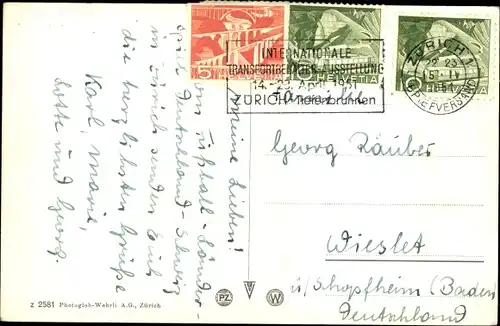 Meine Lieben!
vom Fußball-Länder-
spiel Deutschland-Schweiz
in Zürich senden Euch
die herzlichsten Grüße
Karl, Marie,
Lotte und Georg.
5
HELVETIA
HELVETIA
INTERNATIONALE
TRANSPORTBETON-AUSSTELLUNG
14.-23. April 1954
ZÜRICH Tiefenbrunnen
ZÜRICH 1
22-23
15.IV
54
(BRIEFVERSAND)
Familie
Georg Räuber
Wieslet
ü/Schopfheim (Baden
Deutschland
Z 2581 Photoglob-Wehrli A.G., Zürich
PZ
V
W